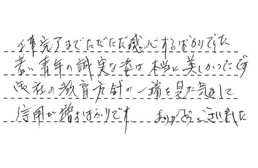 工事完了までただただ感心するばかりでした
若い青年の誠実な姿は本当に美しかったです
御社の教育方針の一端を見た気がして
信用が増すばかりです ありがとうございました